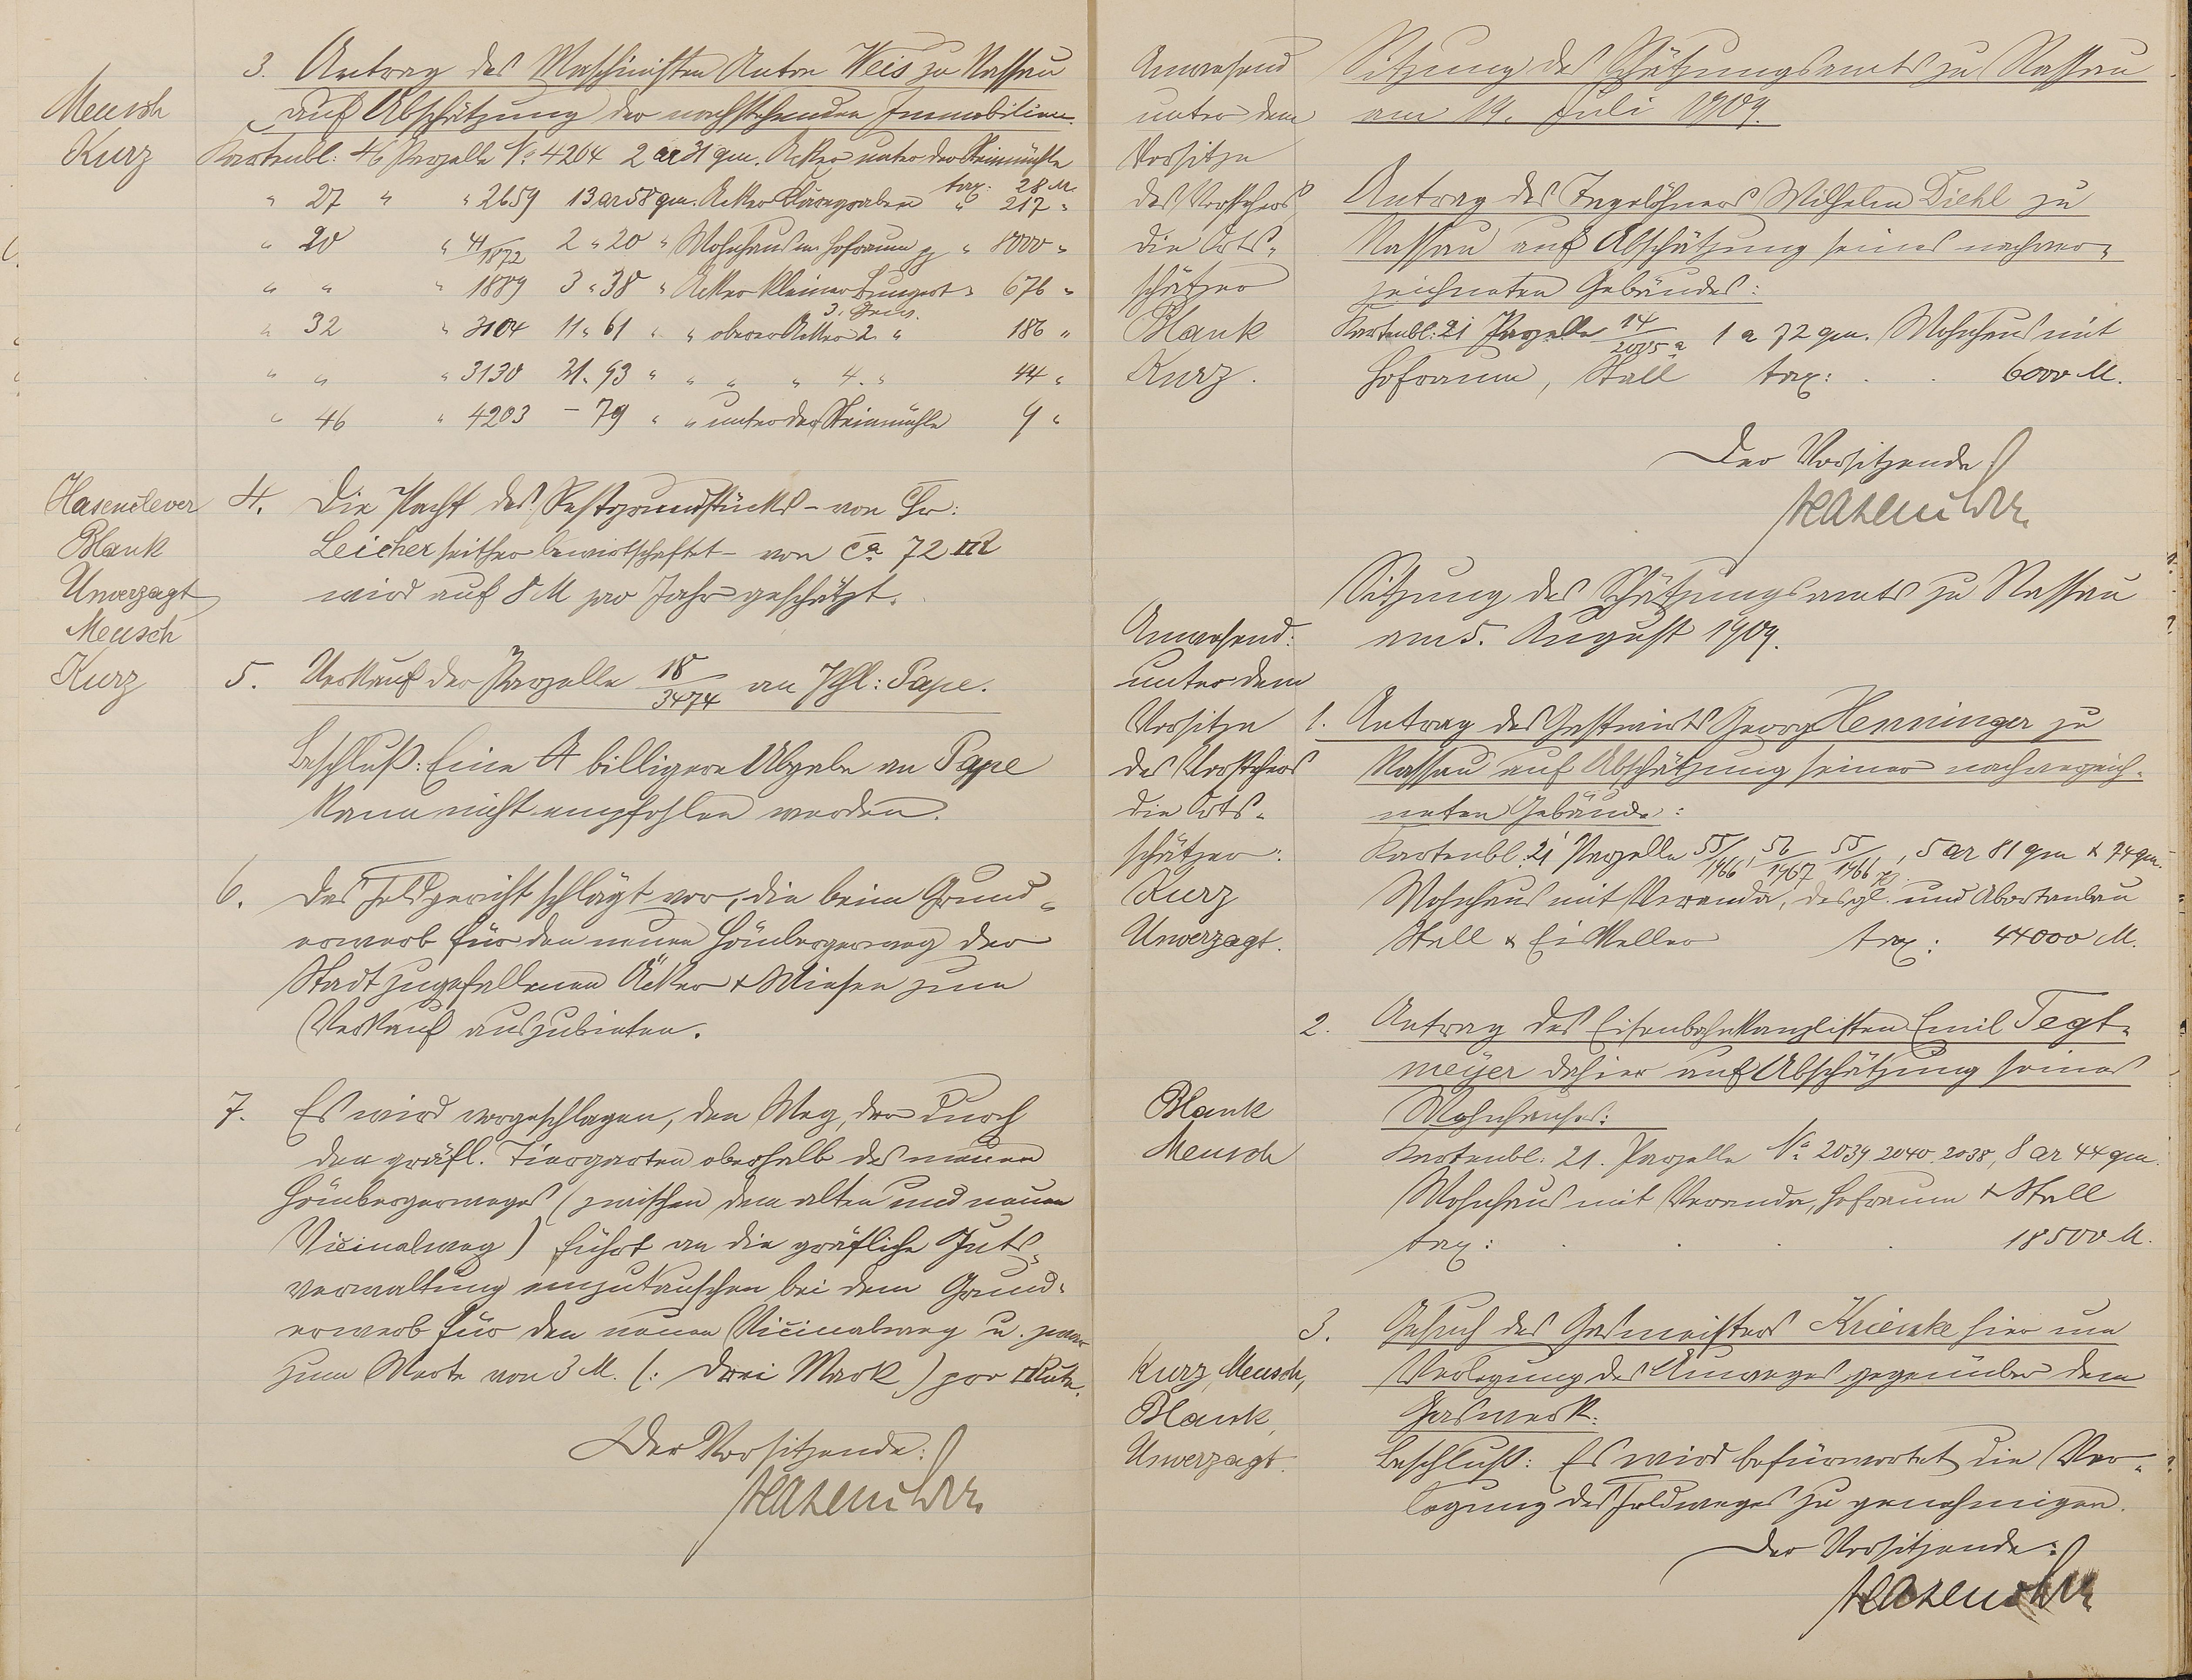 Meusch
Kurz
3. Antrag des Maschinisten Anton Weis zu Nassau
auf Abschätzung der nachstehenden Immobilien.
Kartenbl: 46 Parzelle No 4204 2 ar 31 qm. Acker unter der Steinmühle
tax: 28 M.
" 27 " " 2659 13 ar 58 qm. Acker " 217 "
" 20 " 41/1872 2 " 20 " Wohnhaus m. Hofraum " 8000 "
" " " 1889 3 " 38 " Acker kleiner Bungert " 676 "
3. Gew.
" 32 " 3104 11 " 61 " " oberer Acker 2. " 186 "
" " " 3130 21 " 93 " " " " 4. " 44 "
" 46 " 4203 - 79 " " unter der Steinmühle 9 "
Hasenclever
Blank
Unverzagt
Meusch
Kurz
4. Die Pacht des Restgrundstücks - von Hr:
Leicher seither bewirtschaftet - von ca 72
wird auf 8 M pro Jahr geschätzt.
5. Verkauf der Parzelle 18/3474 an Phl: Pape.
Beschluß: Eine billigere Abgabe an Pape
kann nicht empfohlen werden.
6. Das Feldgericht schlägt vor, die beim Grund-
erwerb für den neuen Hömbergerweg der
Stadt zugefallenen Äcker & Wiesen zum
Verkauf auszubieten.
7. Es wird vorgeschlagen, den Weg, der durch
den gräfl. Tiergarten oberhalb des neuen
Hömbergerweges (zwischen dem alten und neuen
Vicinalweg) führt an die gräfliche Guts-
verwaltung einzutauschen bei dem Grund-
erwerb für den neuen Vicinalweg u. zwar
zum Werte von 3 M. (: Drei Mark) pro □Rute.
Der Vorsitzende:
Hasenclever
Anwesend
unter dem
Vorsitze
des Vorstehers
die Orts-
schätzer
Blank
Kurz.
Sitzung des Schätzungsamts zu Nassau
am 19. Juli 1909.
Antrag des Tagelöhners Wilhelm Diehl zu
Nassau auf Abschätzung seines nachver-
zeichneten Gebäudes:
Kartenbl: 21 Parzelle 14/2085 a 1 a 72 qm. Wohnhaus mit
Hofraum, Stall tax: . . 6000 M.
Der Vorsitzende
Hasenclever
Anwesend:
unter dem
Vorsitze
des Vorstehers
die Orts-
schätzer:
Kurz
Unverzagt.
Sitzung des Schätzungsamts zu Nassau
am 5. August 1909.
1. Antrag des Gastwirts Georg Henninger zu
Nassau auf Abschätzung seiner nachverzeich-
neten Gebäude:
Kartenbl. 21 Parzelle 55/1966, 56/1967 55/1966, 5 ar 81 qm & 74 qm.
Wohnhaus mit Veranda, desgl. und Abortanbau
Stall & Eiskeller tax: 44000 M.
Blank
Meusch
2. Antrag des Eisenbahnkanzlisten Emil Tegt-
meyer dahier auf Abschätzung seines
Wohnhauses:
Kartenbl: 21. Parzelle No 2039 2040 2038, 8 ar 44 qm.
Wohnhaus mit Veranda, Hofraum & Stall
tax: . . . . 18500 M.
Kurz, Meusch,
Blank,
Unverzagt.
3. Gesuch des Gasmeisters Krienke hier um
Verlegung des gegenüber dem
Gaswerk.
Beschluß: Es wird befürwortet die Ver-
legung des Feldweges zu genehmigen.
Der Vorsitzende:
Hasenclever